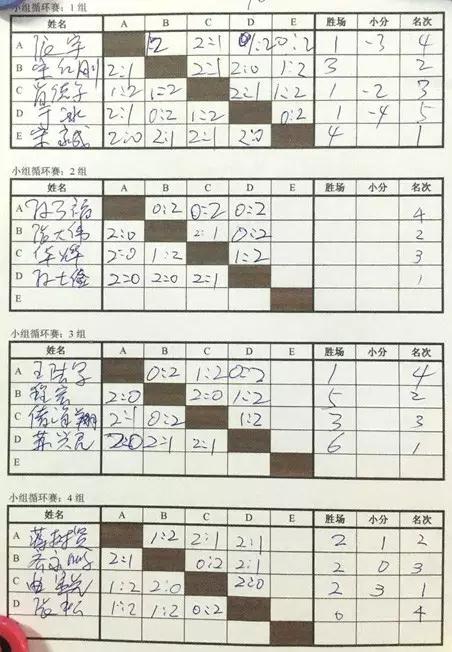 小组循环赛：1 组
姓名 A B C D E 胜场 小分 名次
A 1:2 2:1 0:2 1 -3 4
B 2:1 2:1 2:0 1:2 3 2
C 1:2 1:2 2:1 1:2 1 -2 3
D 2:1 0:2 1:2 0:2 1 -4 5
E 2:0 2:1 2:1 2:0 4 1
小组循环赛：2 组
姓名 A B C D E 胜场 小分 名次
A 0:2 0:2 0:2 4
B 陈大伟 2:0 2:1 0:2 2
C 华辉 2=0 1:2 1:2 3
D 2=0 2=0 2=1 1
E
小组循环赛：3 组
姓名 A B C D E 胜场 小分 名次
A 0:2 1:2 0:2 1 4
B 程宏 2:0 2:0 1:2 5 2
C 2:1 0:2 1:2 3 3
D 2:0 2:1 2:1 6 1
E
小组循环赛：4 组
姓名 A B C D E 胜场 小分 名次
A 1:2 2:1 2:1 2 1 2
B 2:1 0:2 2:1 2 0 3
C 1:2 2:0 2:0 2 3 1
D 陈松 1:2 1:2 0:2 0 4
E